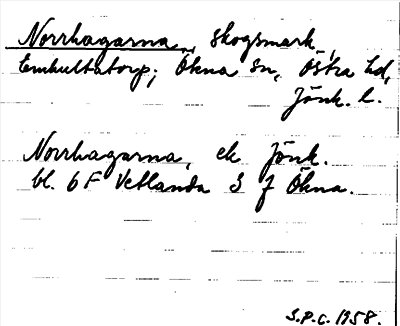 Norrhagarna, skogsmark,
Emhultatorp; Ökna sn, Östra hd,
Jönk. l.
Norrhagarna, ek Jönk.
bl. 6 F Vetlanda 3 f Ökna.
S.P.C. 1958.